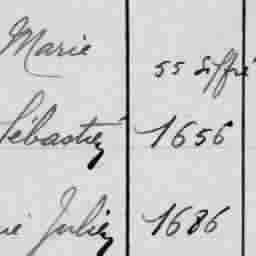 Marie 55 Siffré
Sébastien 1656
Julien 1686